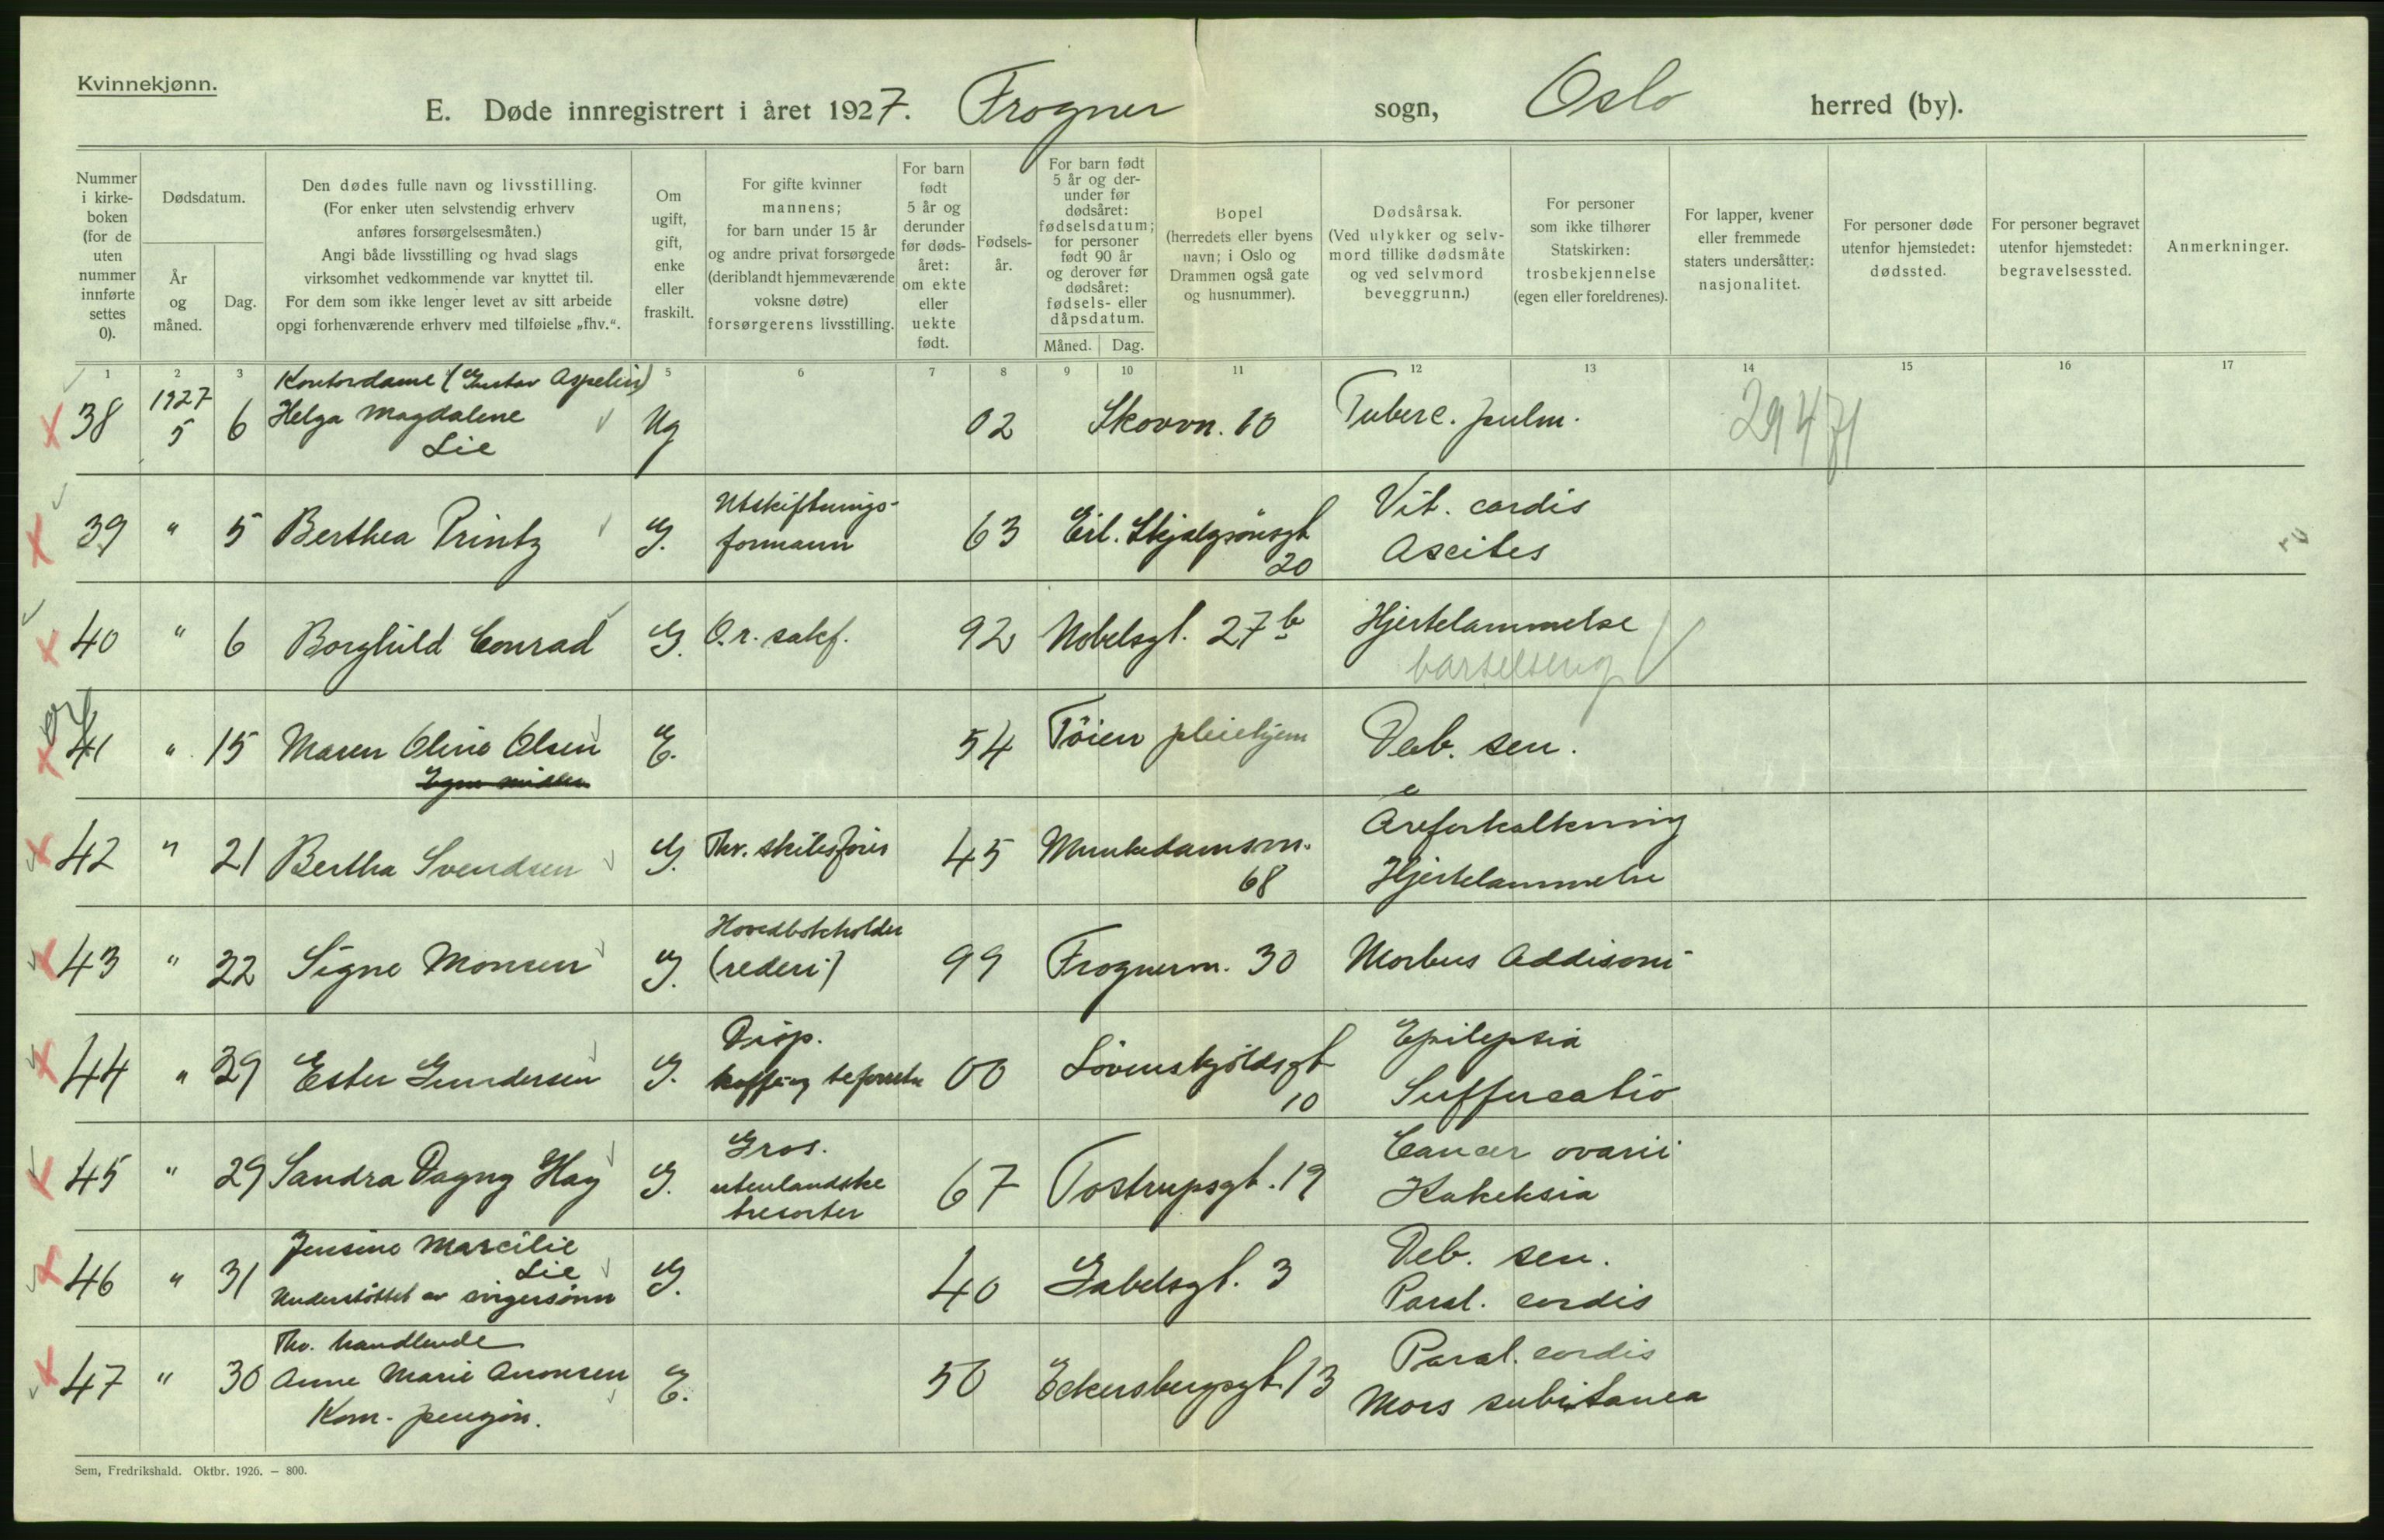 Kvinnekjønn.
E. Døde innregistrert i året 1927. Frogner sogn, Oslo herred (by).
Nummer i kirke- boken (for de uten nummer innførte settes 0).
Dødsdatum.
År og måned.
Dag.
Den dødes fulle navn og livsstilling.
(For enker uten selvstendig erhverv
anføres forsørgelsesmåten.)
Angi både livsstilling og hvad slags
virksomhet vedkommende var knyttet til.
For dem som ikke lenger levet av sitt arbeide
opgi forhenværende erhverv med tilføielse „fhv.“.
Om ugift, gift, enke eller fraskilt.
For gifte kvinner
mannens;
for barn under 15 år
og andre privat forsørgede
(deriblandt hjemmeværende
voksne døtre)
forsørgerens livsstilling.
For barn født 5 år og derunder før døds- året: om ekte eller uekte født.
Fødsels- år.
For barn født
5 år og der-
under før
dødsåret:
fødselsdatum;
for personer
født 90 år
og derover før
dødsåret:
fødsels- eller
dåpsdatum.
Måned. Dag.
Bopel
(herredets eller byens
navn; i Oslo og
Drammen også gate
og husnummer).
Dødsårsak.
(Ved ulykker og selv-
mord tillike dødsmåte
og ved selvmord
beveggrunn.)
For personer
som ikke tilhører
Statskirken:
trosbekjennelse
(egen eller foreldrenes).
For lapper, kvener
eller fremmede
staters undersåtter:
nasjonalitet.
For personer døde
utenfor hjemstedet:
dødssted.
For personer begravet
utenfor hjemstedet:
begravelsessted.
Anmerkninger.
1 2 3 5 6 7 8 9 10 11 12 13 14 15 16 17
Kontordame (Gustav Aspelin)
38 1927 5 6 Helga Magdalene Lie Ug 02 Skovvn. 10 Tuberc. pulm. 29471
39 " 5 Berthea Printz G. Utskiftnings-
formann 63 Erl. Skjalgsønsgt 20 Vit. cordis
Ascites
40 " 6 Borghild Conrad G. O.r. sakf. 92 Nobelsgt. 27b Hjertelammelse
barselseng
41 " 15 Maren Oline Olsen E. 54 Töien pleiehjem Deb. sen.
42 " 21 Bertha Svendsen G. Fhv. skibsfører 45 Munkedamsvn. 68 Åreforkalkning
Hjertelammelse
43 " 22 Signe Monsen G. Hovedbokholder
(rederi) 99 Frognervn. 30 Morbus Addisoni
44 " 29 Ester Gundersen G. Disp.
00 Lövenskjöldsgt 10 Epilepsia
Suffucatio
45 " 29 Sandra Dagny Hay G. Gros.
utenlandske
tresorter 67 Tostrupsgt. 19 Cancer ovarii
Kakeksia
46 " 31 Jensine Marcilie
Lie
Understöttet av svigersönn G. 40 Gabelsgt. 3 Deb. sen.
Paral. cordis
Fhv. handlende
47 " 30 Anne Marie Aronsen E. 50 Eckersbergsgt. 13 Paral. cordis
Kom. pensjon. Mors subitanea
Sem, Fredrikshald. Oktbr. 1926. — 800.